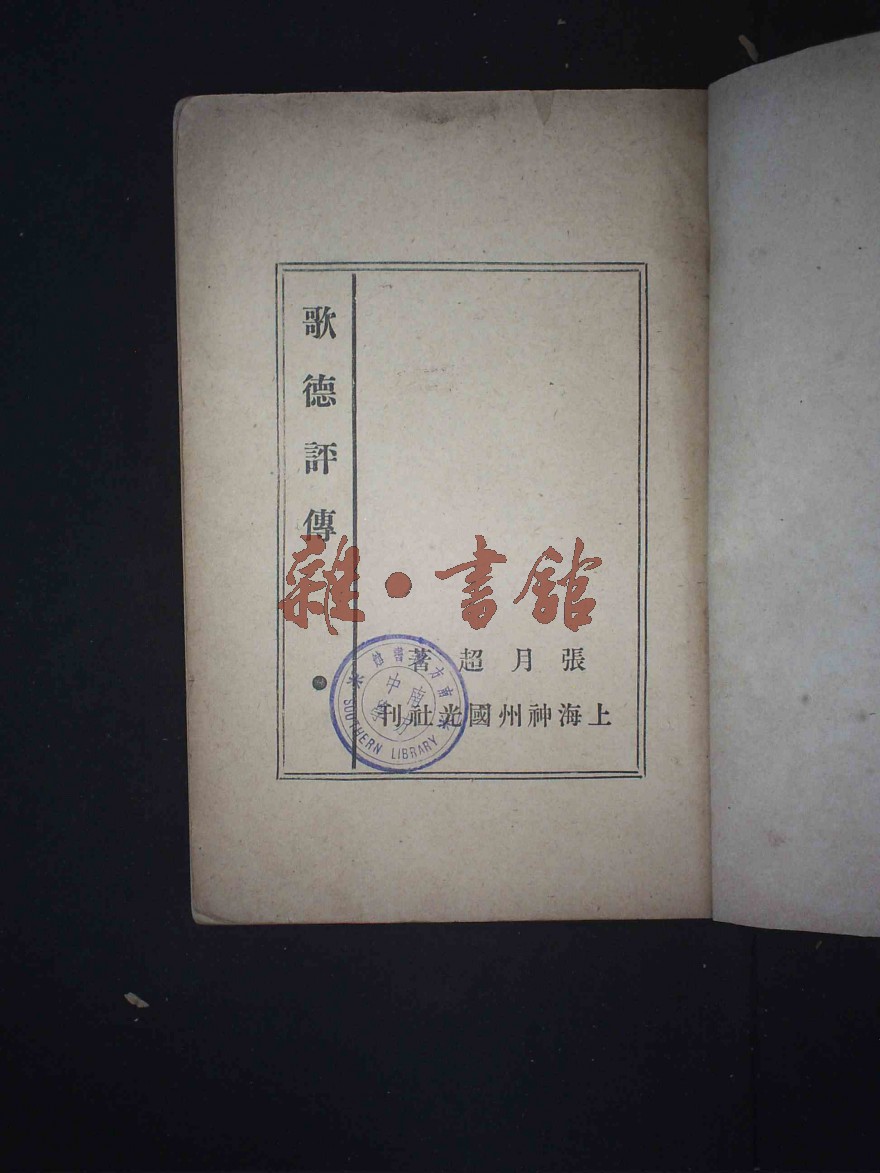 歌德評傳
雜·書舘
張月超著
上海神州國光社刊
南方書館
SOUTHERN LIBRARY
中南